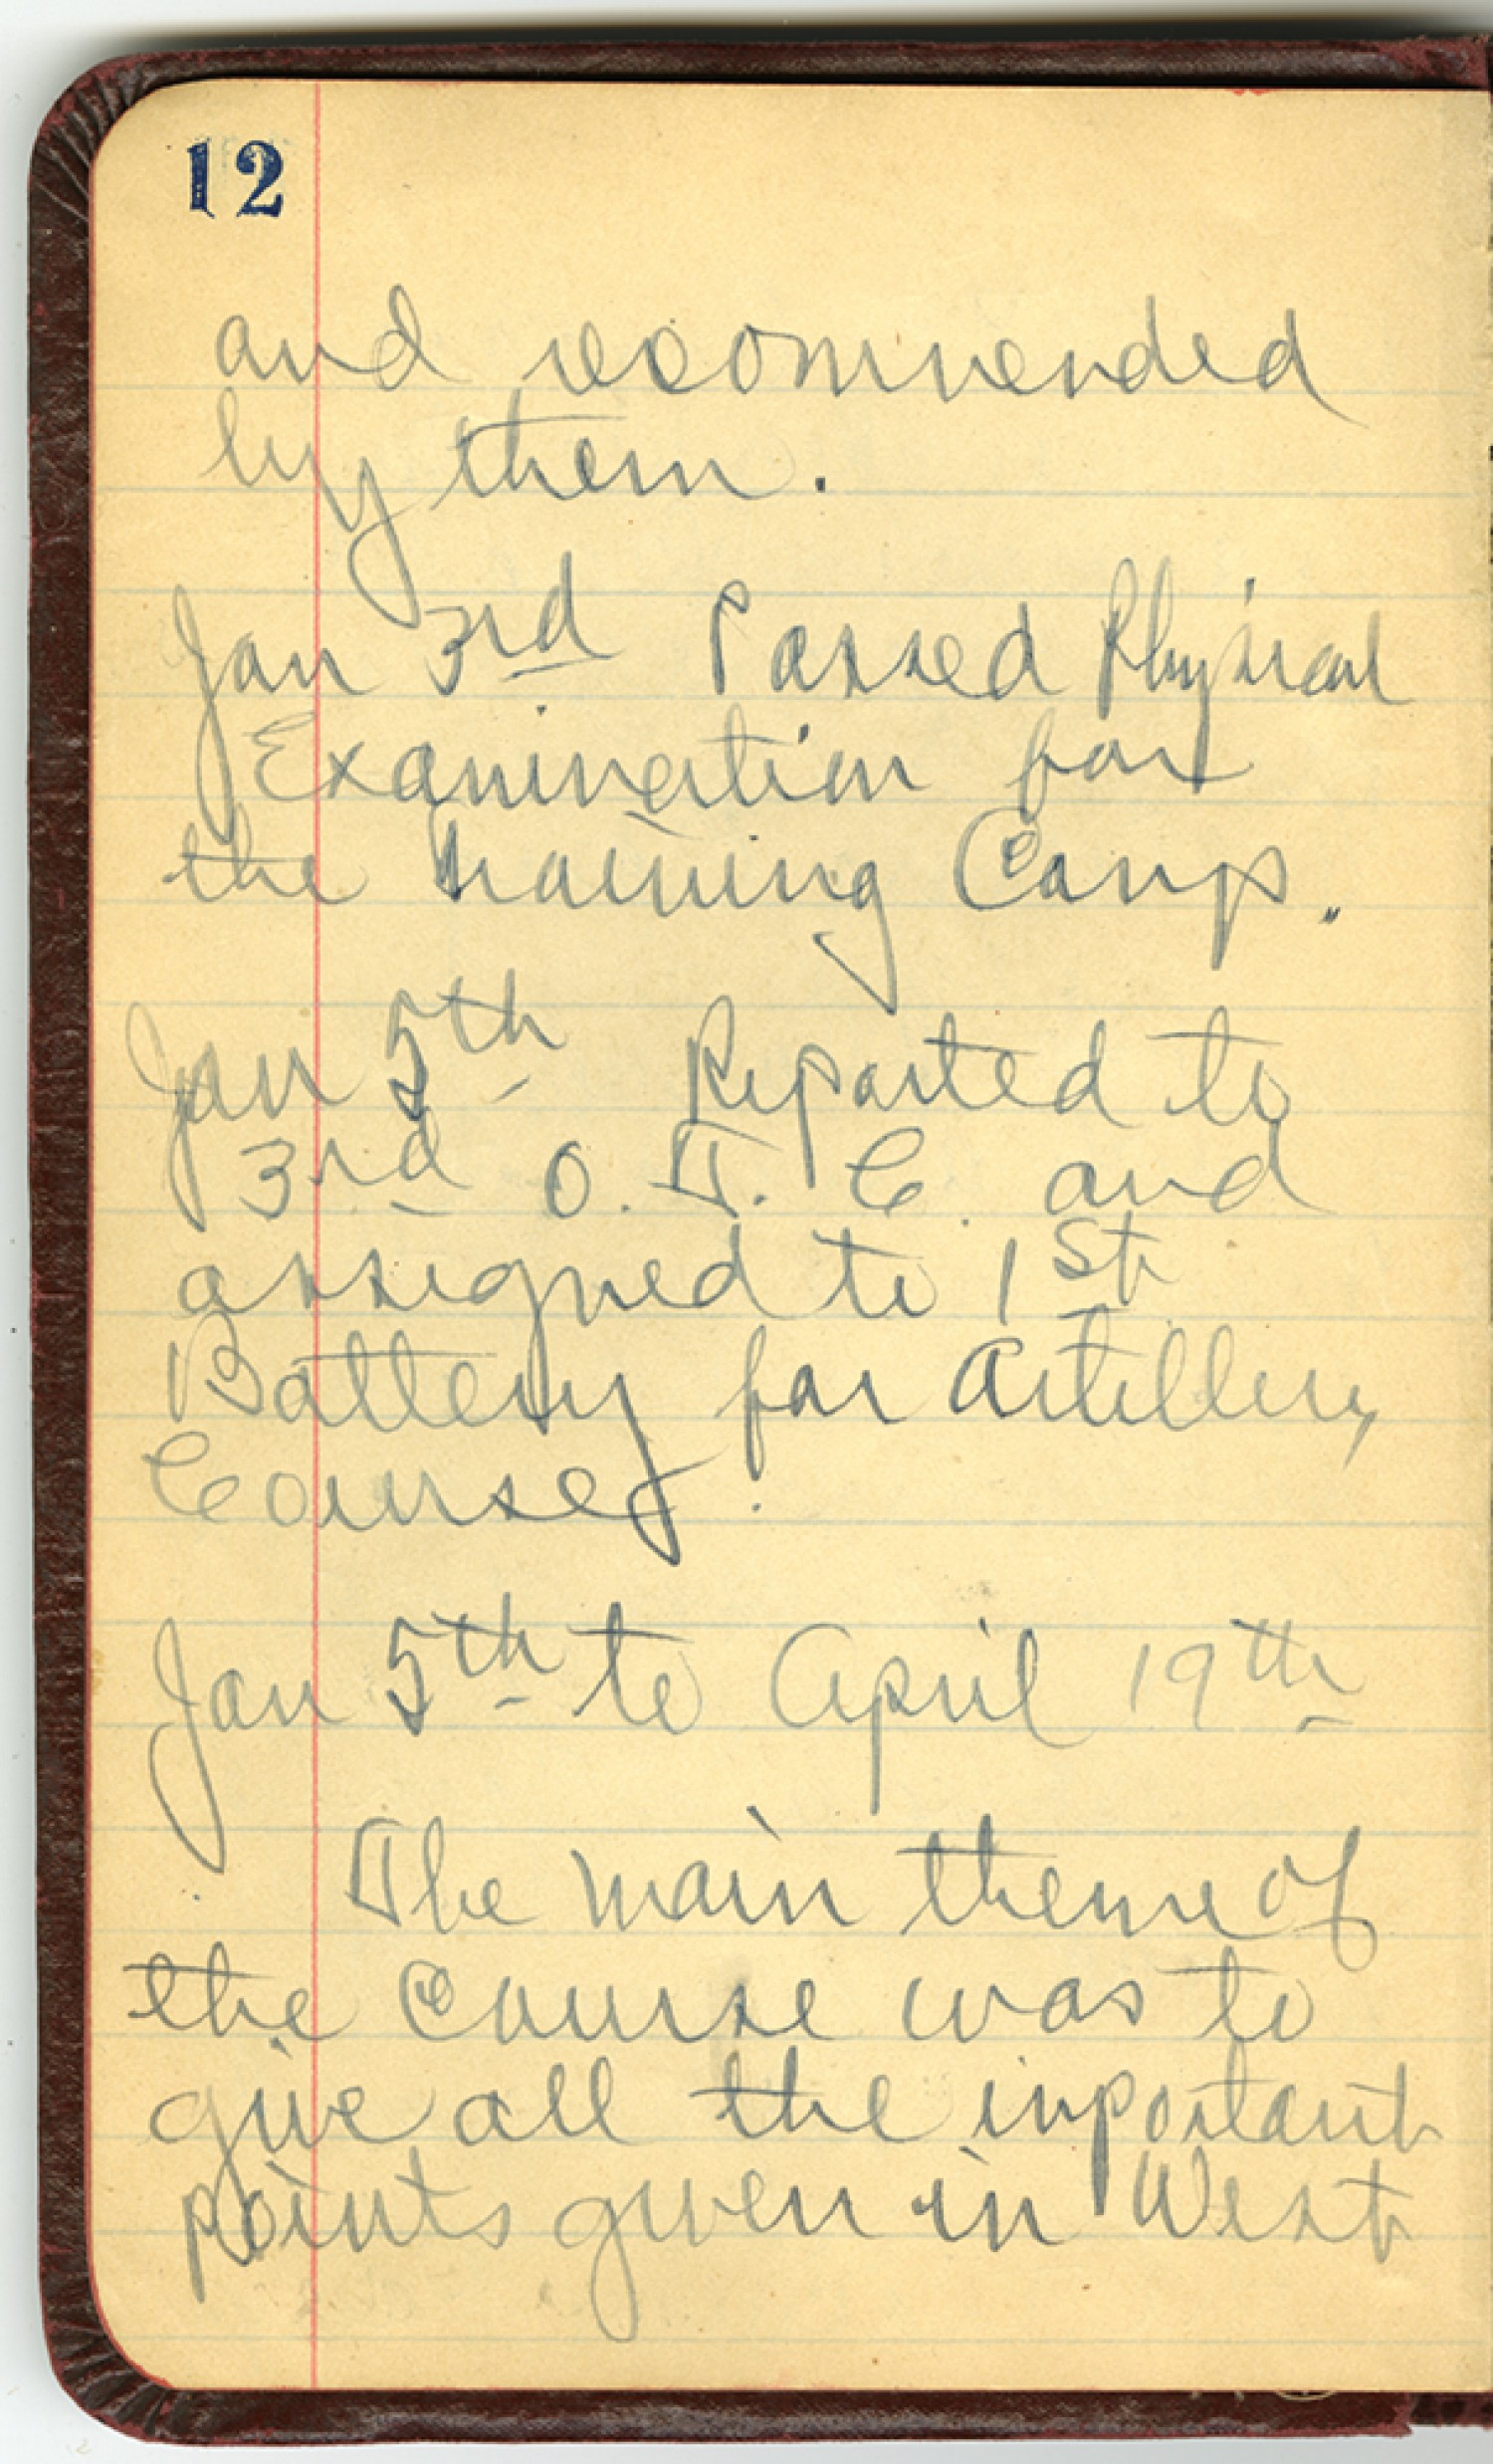 12
and recommended
by them.
Jan 3rd Passed Physical
Examination for
the training Camp.
Jan 5th Reported to
3rd O. T. C. and
assigned to 1st
Battery for Artillery
Course.
Jan 5th to April 19th
The main theme of
the Course was to
give all the important
points given in West